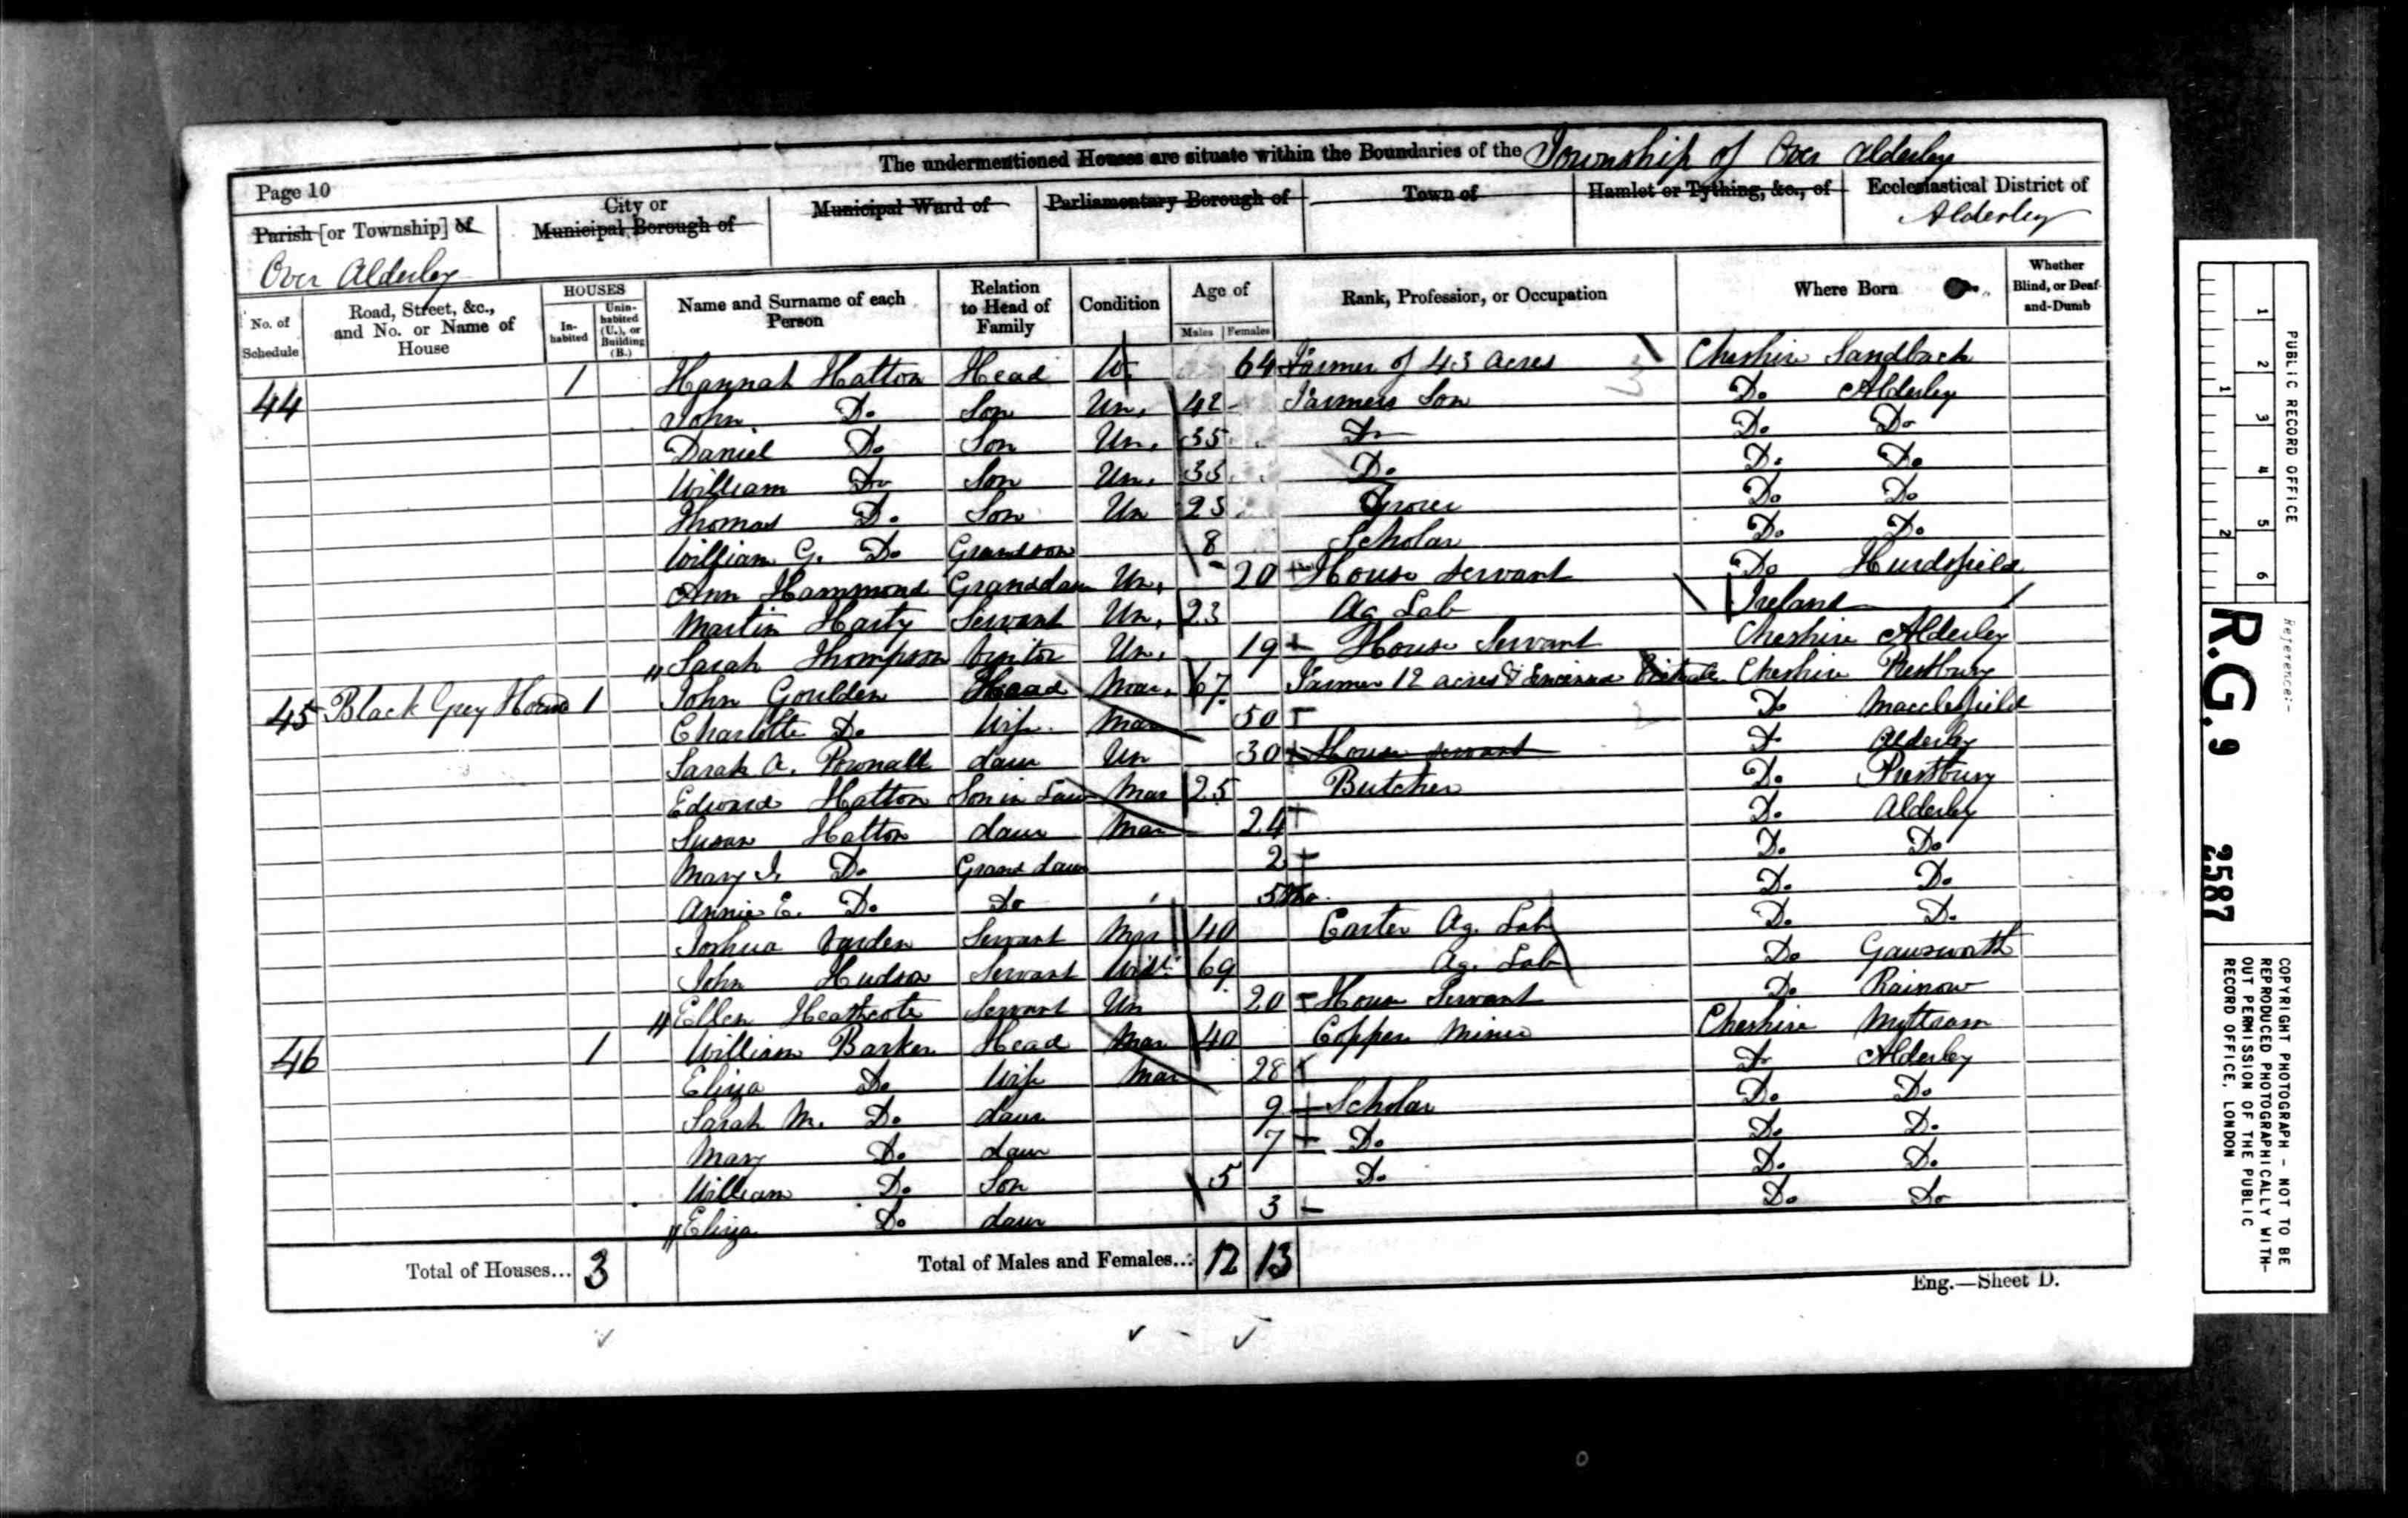 The undermentioned Houses are situate within the Boundaries of the Township of Over Alderley
Page 10
Parish [or Township] of
Over Alderley
City or
Municipal Borough of
Municipal Ward of
Parliamentary Borough of
Town of
Hamlet or Tything, &c., of
Ecclesiastical District of
Alderley
No. of Schedule
Road, Street, &c., and No. or Name of House
HOUSES
In-habited
Unin-habited (U.), or Building (B.)
Name and Surname of each Person
Relation to Head of Family
Condition
Age of
Males Females
Rank, Profession, or Occupation
Where Born
Whether Blind, or Deaf-and-Dumb
44 1 Hannah Hatton Head W. 64 Farmer of 43 Acres Cheshire Sandbach
John Do. Son Un. 42 Farmers Son Do. Alderley
Daniel Do. Son Un. 35 Do Do. Do
William Do Son Un. 33 Do. Do. Do
Thomas Do. Son Un 23 Grocer Do Do
William G. Do Grandson 8 Scholar Do Do.
Ann Hammond Granddaur Un. 20 House Servant Do Hurdsfield
Martin Harty Servant Un. 23 Ag Lab Ireland
Sarah Thompson Visitor Un. 19 House Servant Cheshire Alderley
45 Black Grey Hound 1 John Goulden Head Mar. 67 Farmer 12 acres & Cheshire Prestbury
Charlotte Do. Wife Mar 50 Do Macclesfield
Sarah A. Pownall daur Un 30 House servant Do Alderley
Edward Hatton Son in Law Mar 25 Butcher Do. Prestbury
Susan Hatton daur Mar 24 Do. Alderley
Mary Do. Grand daur 2 Do. Do
Annie E. Do. Do 5 Mo. Do. Do.
Joshua Varden Servant Mar 40 Carter Ag. Lab Do. Do.
John Hudson Servant 69 Ag. Lab Do Gawsworth
Ellen Heathcote Servant Un 20 House Servant Do Rainow
46 1 William Barker Head Mar 40 Copper Miner Cheshire Mottram
Eliza Do. Wife Mar 28 Do Alderley
Sarah M. Do. daur 9 Scholar Do. Do.
Mary Do. daur 7 Do. Do. Do.
William Do. Son 5 Do. Do. Do.
Eliza Do daur 3 Do. Do
Total of Houses... 3
Total of Males and Females... 12 13
Eng.—Sheet D.
PUBLIC RECORD OFFICE
1 2 3 4 5 6
1 2
Reference:-
R.G. 9 2587
COPYRIGHT PHOTOGRAPH - NOT TO BE
REPRODUCED PHOTOGRAPHICALLY WITH-
OUT PERMISSION OF THE PUBLIC
RECORD OFFICE, LONDON